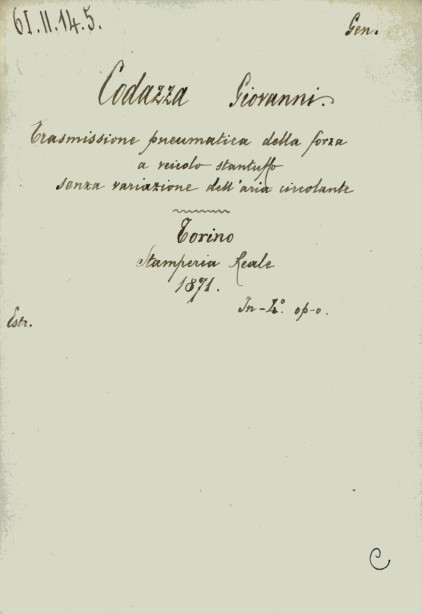 61.II.14.5.
Gen.
Codazza Giovanni.
Trasmissione pneumatica della forza
a veicolo stantuffo
senza variazione dell'aria circolante
Torino
Stamperia Reale
1871.
In-4.° op-o.
Estr.
C